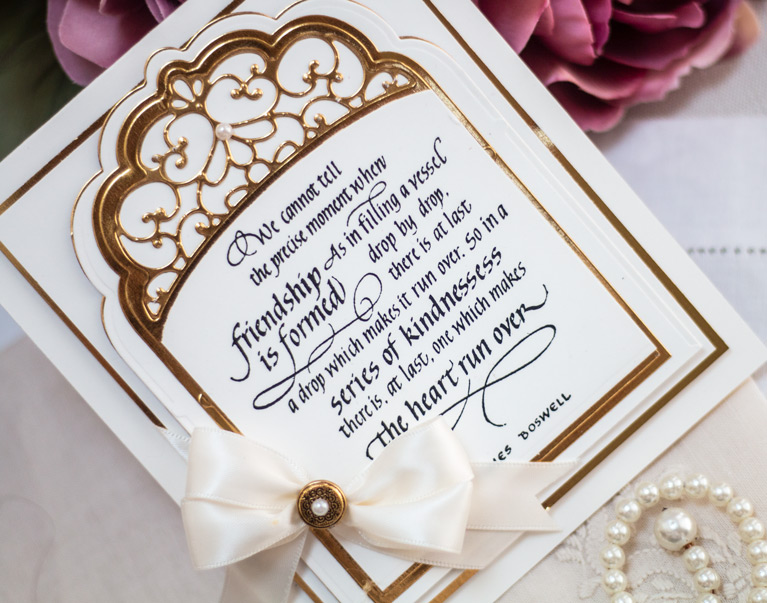 We cannot tell
the precise moment when
friendship As in filling a vessel
is formed drop by drop,
there is at last
a drop which makes it run over. So in a
series of kindnessess
there is, at last, one which makes
the heart run over
BOSWELL